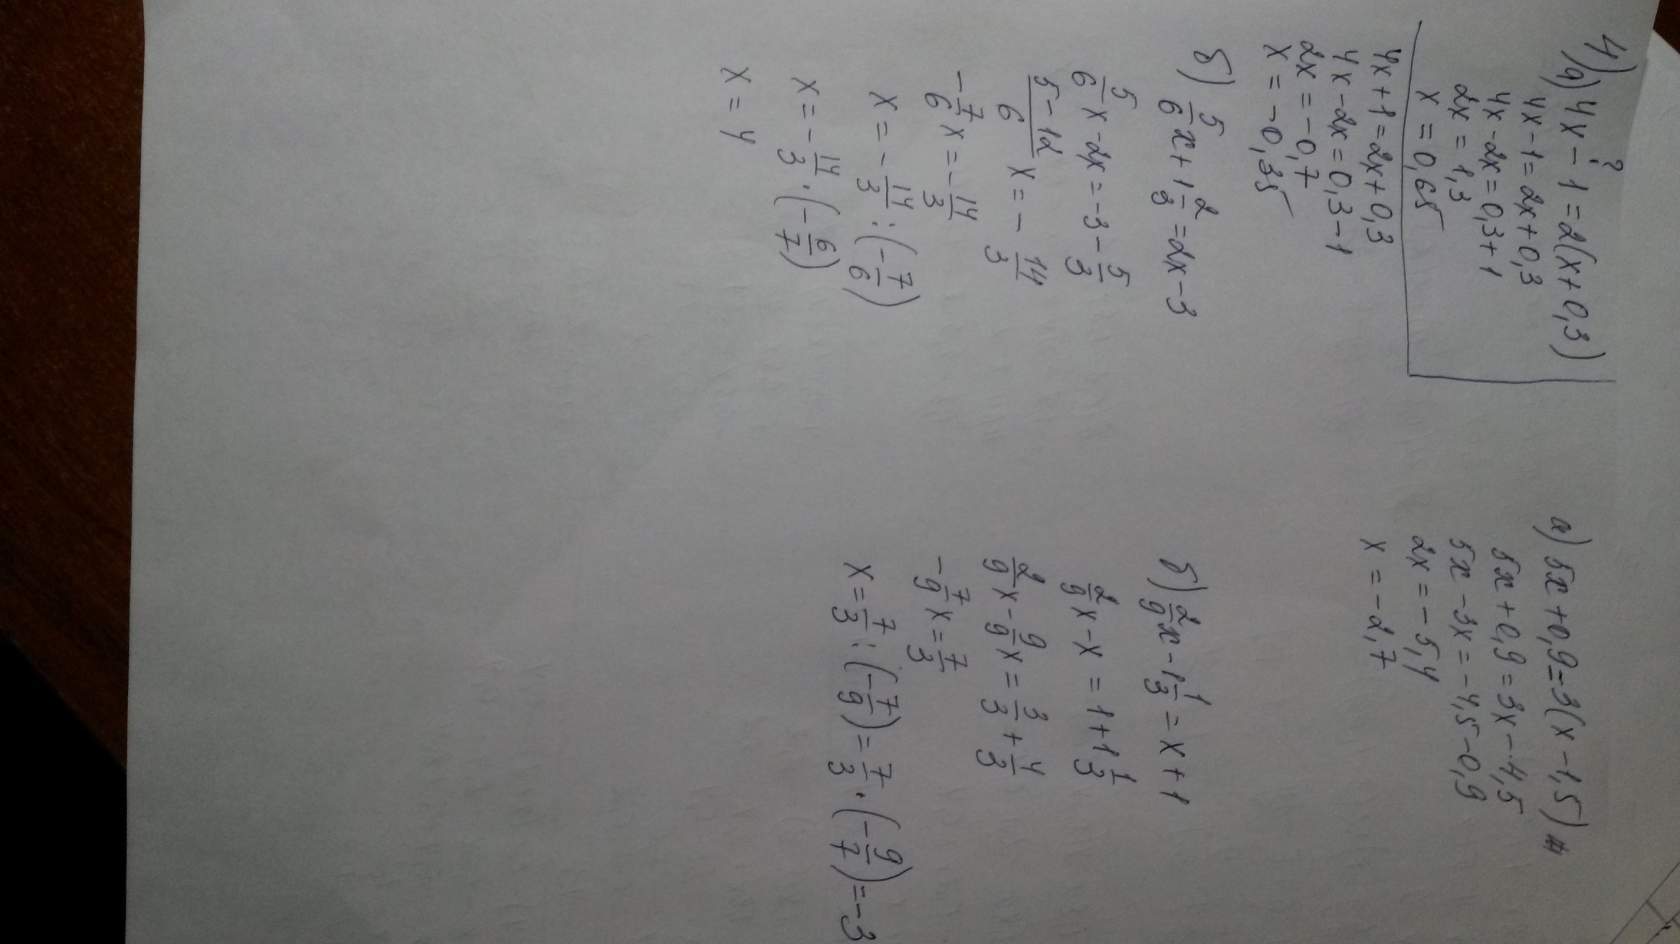 4) а) 4x - 1 = 2(x + 0,3)
?
4x - 1 = 2x + 0,3
4x - 2x = 0,3 + 1
2x = 1,3
x = 0,65
4x + 1 = 2x + 0,3
4x - 2x = 0,3 - 1
2x = -0,7
x = -0,35
б) 5/6 x + 1 2/3 = 2x - 3
5/6 x - 2x = -3 - 5/3
(5 - 12)/6 x = - 14/3
- 7/6 x = - 14/3
x = - 14/3 : (- 7/6)
x = - 14/3 · (- 6/7)
x = 4
а) 5x + 0,9 = 3(x - 1,5)
5x + 0,9 = 3x - 4,5
5x - 3x = -4,5 - 0,9
2x = -5,4
x = -2,7
б) 2/9 x - 1 1/3 = x + 1
2/9 x - x = 1 + 1 1/3
2/9 x - 9/9 x = 3/3 + 4/3
- 7/9 x = 7/3
x = 7/3 : (- 7/9) = 7/3 · (- 9/7) = -3